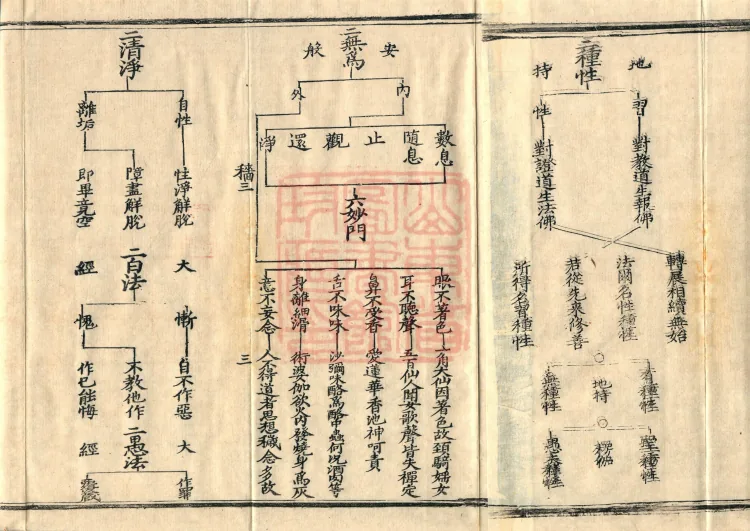 地
持
二種性
習
性
對教道生報佛
對證道生法佛
轉展相續無始
法爾名性種性
若從先來修善
所得名習種性
有種性
地持
無種性
聖種性
楞伽
愚夫種性
安
般
二無為
內
外
數息
隨息
止
觀
還
淨
六妙門
眼不著色
耳不聽聲
鼻不受香
舌不味味
身離細滑
意不妄念
一角大仙因著色故頸騎婬女
五百仙人聞女歌聲皆失禪定
愛蓮華香池神呵責
沙彌味酪為酪中蟲何況酒肉等
術婆伽欲火內發燒身為灰
人不得道者思想穢念多故
穡三
三
二清淨
自性
離垢
性淨解脫
障盡解脫
即畢竟空
大
經
二白法
慚
愧
自不作惡
不教他作
作已能悔
大
經
二愚法
作罪
覆藏